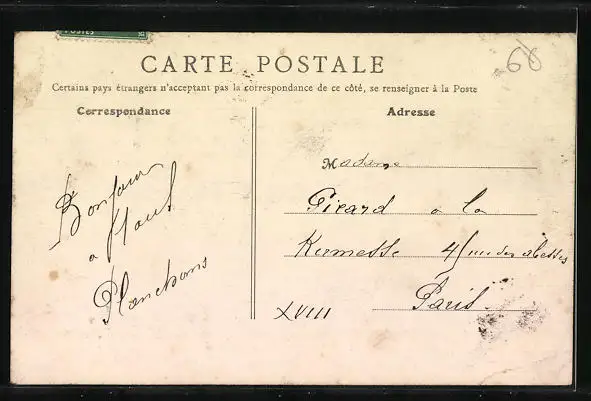 POSTES
60
CARTE POSTALE
Certains pays étrangers n'acceptant pas la correspondance de ce côté, se renseigner à la Poste
Correspondance
Adresse
Bonjour
a
Planchons
Madame
Picard a la
Kermesse 4 rue des abesses
Paris
XVIII